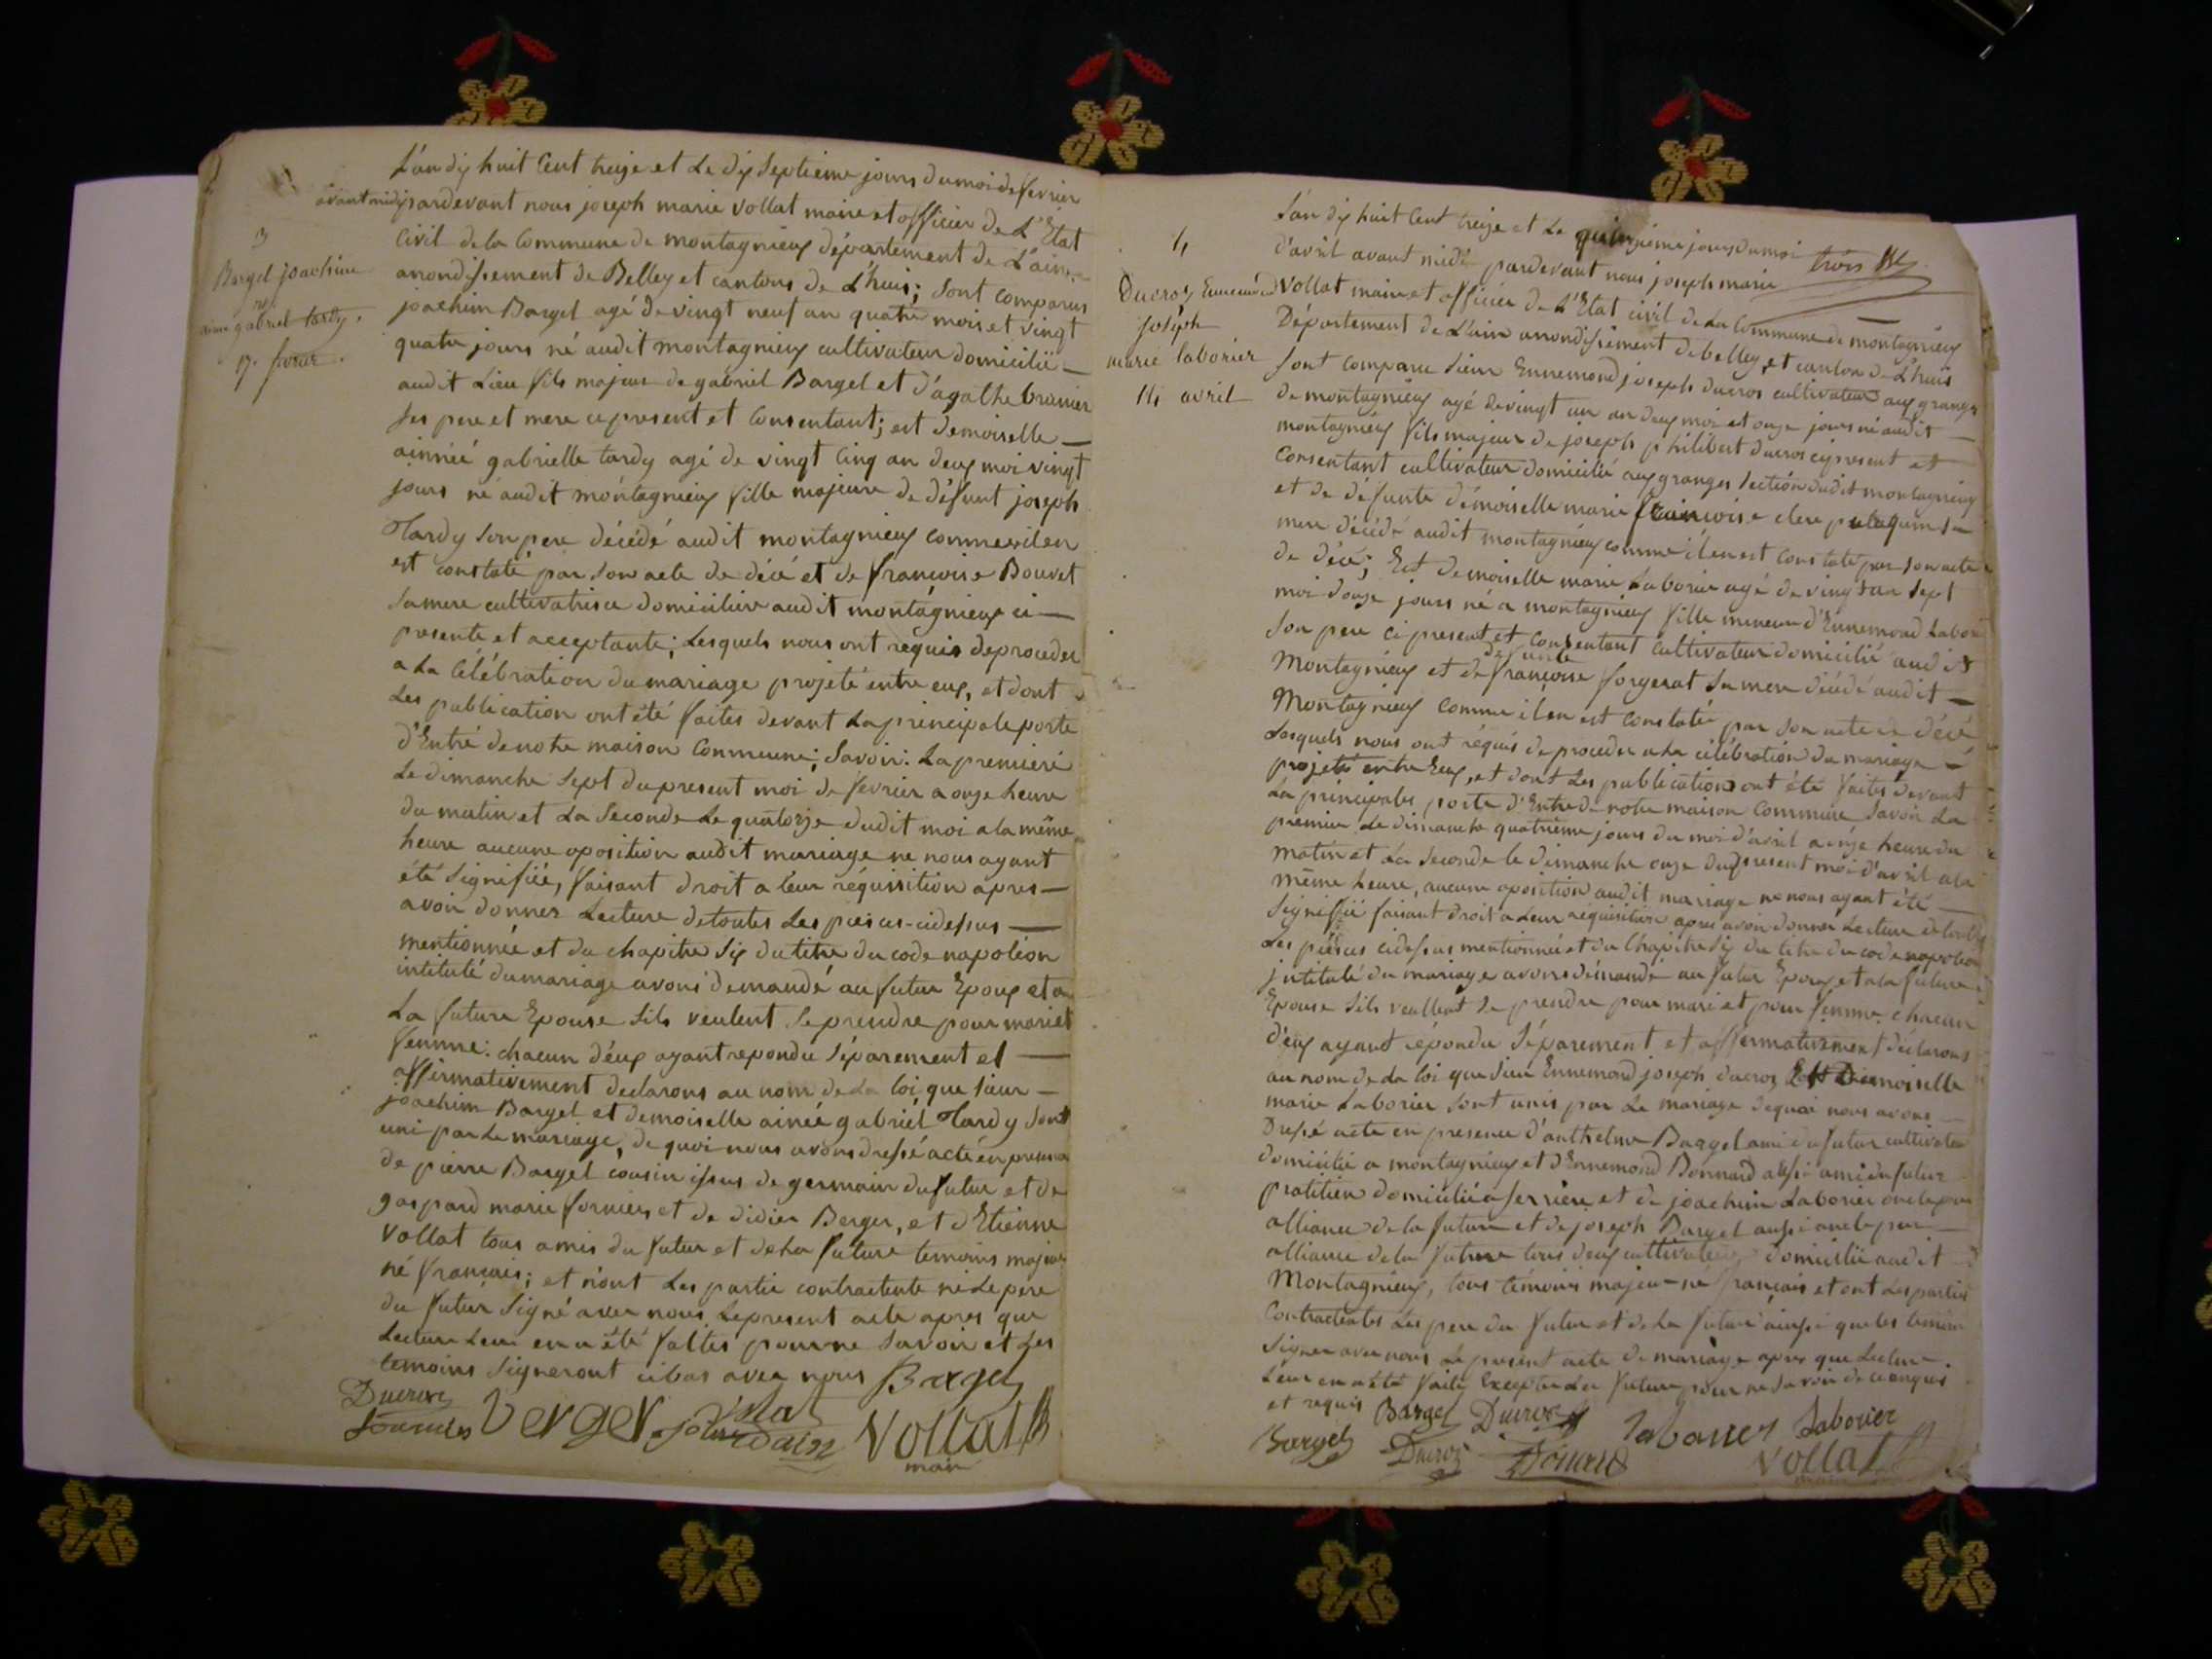 L'an dix huit Cent treize et Le dix Septieme jours du moi de fevrier
avant midi pardevant nous joseph marie vollat maire et officier de L'Etat
Civil de la Commune de montagnieux département de L'ain
arrondissement de Belley et cantons de L'huis; Sont Comparus
joachim Bargel agé de vingt neuf an quatre mois et vingt
quatre jours né audit montagnieux cultivateur domicilié
audit Lieu fils majeur de gabriel Bargel et d'agathe
ses pere et mere ce present et Consentant; est demoiselle
ainnée gabrielle tardy agé de vingt Cinq an deux moi vingt
jours né audit montagnieux fille majeure de défunt joseph
Tardy Son pere décédé audit montagnieux comme il en
est constaté par Son acte de décé et de francoise Bouvet
Sa mere cultivatrisce domiciliée audit montagnieux ci
presente et acceptante; Lesquels nous ont requis de proceder
a La Célébration du mariage projeté entre eux, et dont
Les publication ont été faites devant La principale porte
d'Entré de notre maison Commune; Savoir: La premiere
Le dimanche Sept du present moi de fevrier a onze heure
du matin et La Seconde Le quatorze dudit moi a la même
heure aucune oposition audit mariage ne nous ayant
été Signifiée, faisant droit a leur réquisition apres
avoir donner Lecture de toutes Les pieces cidessus
mentionnée et du chapitre Six du titre du code napoléon
intitulé du mariage avons demandé au futur Epoux et a
La future Epouse Sils veulent Se prendre pour mari et
femme: chacun d'eux ayant repondu Séparement et
affirmativement declarons au nom de La loi que Sieur
joachim Bargel et demoiselle ainée gabriel Tardy Sont
uni par Le mariage, de quoi nous avons dressé acte en presence
de pierre Bargel cousin issus de germain du futur et de
gaspard marie fornier, et de didier Berger, et d'Etienne
vollat tous amis du futur et de La future temoins majeur
né français; et n'ont Les partie contractente ni Le pere
du futur Signé avec nous Le present acte apres que
Lecture Leur en a été faites pour ne Savoir et Les
temoins Signeront cibas avec nous Bargel
Ducros
verger vollat
maire
3
Bargel joachim
et
aine gabriel tardy.
17. fevrier.
L'an dix huit Cent treize et Le quinzieme jours du moi
trois
d'avril avant midi pardevant nous joseph marie
vollat maire et officier de L'Etat civil de La Commune de montagnieux
Département de L'ain arrondissement de belley, et canton de L'huis
Sont comparu Sieur Ennemond joseph ducros cultivateur aux granges
de montagnieux agé de vingt un an deux moi et onze jours né audit
montagnieux fils majeur de joseph philibert ducros cipresent et
Consentant cultivateur domicilié aux granges Section dudit montagnieux
et de défunte démoiselle marie francoise clere Sa
mere décédé audit montagnieux comme il en est Constaté par Son acte
de décé; Est demoiselle marie Laborier agé de vingt an Sept
moi douze jours né a montagnieux fille mineure d'Ennemond Laborier
Son pere ci present et consentant cultivateur domicilié audit
Montagnieux et de défunte françoise forgerat Sa mere décédé audit
Montagnieux Comme il en est Constaté par Son acte de décé
Lesquels nous ont réquis de proceder a La célébration du mariage
projeté entre Eux, et dont Les publications ont été faites devant
La principales porte d'Entré de notre maison Commune Savoir La
premier Le dimanche quatrième jours du moi d'avril a onze heure du
Matin et La Seconde le dimanche onze du present moi d'avril a la
même heure, aucune oposition audit mariage ne nous ayant été
Signifié faisant droit a Leur réquisition apres avoir donner Lecture de toutes
Les piéces cidessus mentionné et du Chapitre Six du titre du code napoléon
intitulé du mariage avons démandé au futur Epoux et a la future
Epouse Sils veullent Se prendre pour mari et pour femme. chacun
d'eux ayant répondu Séparement et affermativement déclarons
au nom de La loi que Sieur Ennemond joseph ducros Est Demoiselle
marie Laborier Sont unis par Le mariage dequoi nous avons
Dressé acte en presence d'anthelme Bargel ami du futur cultivateur
domicilié a montagnieux et d'Ennemond Bonnard aussi ami du futur
pratitien domicilié a Serriere et de joachim Laborier oncle par
alliance de la future et de joseph Bargel aussi oncle par
alliance de la future tous deux cultivateur domicilié audit
Montagnieux, tous témoins majeur né français et ont Les parties
Contractentes Les pere du futur et de La future ainsi que les temoin
Signer avec nous Le present acte de mariage apres que Lecture
Leur en a été faite Excepter La future pour ne Savoir de ce enquis
et requis Bargel Ducros Laborier Laborier
Bargel Ducros vollat
maire
4
Ducros Ennemond
joseph
marie laborier
14 avril